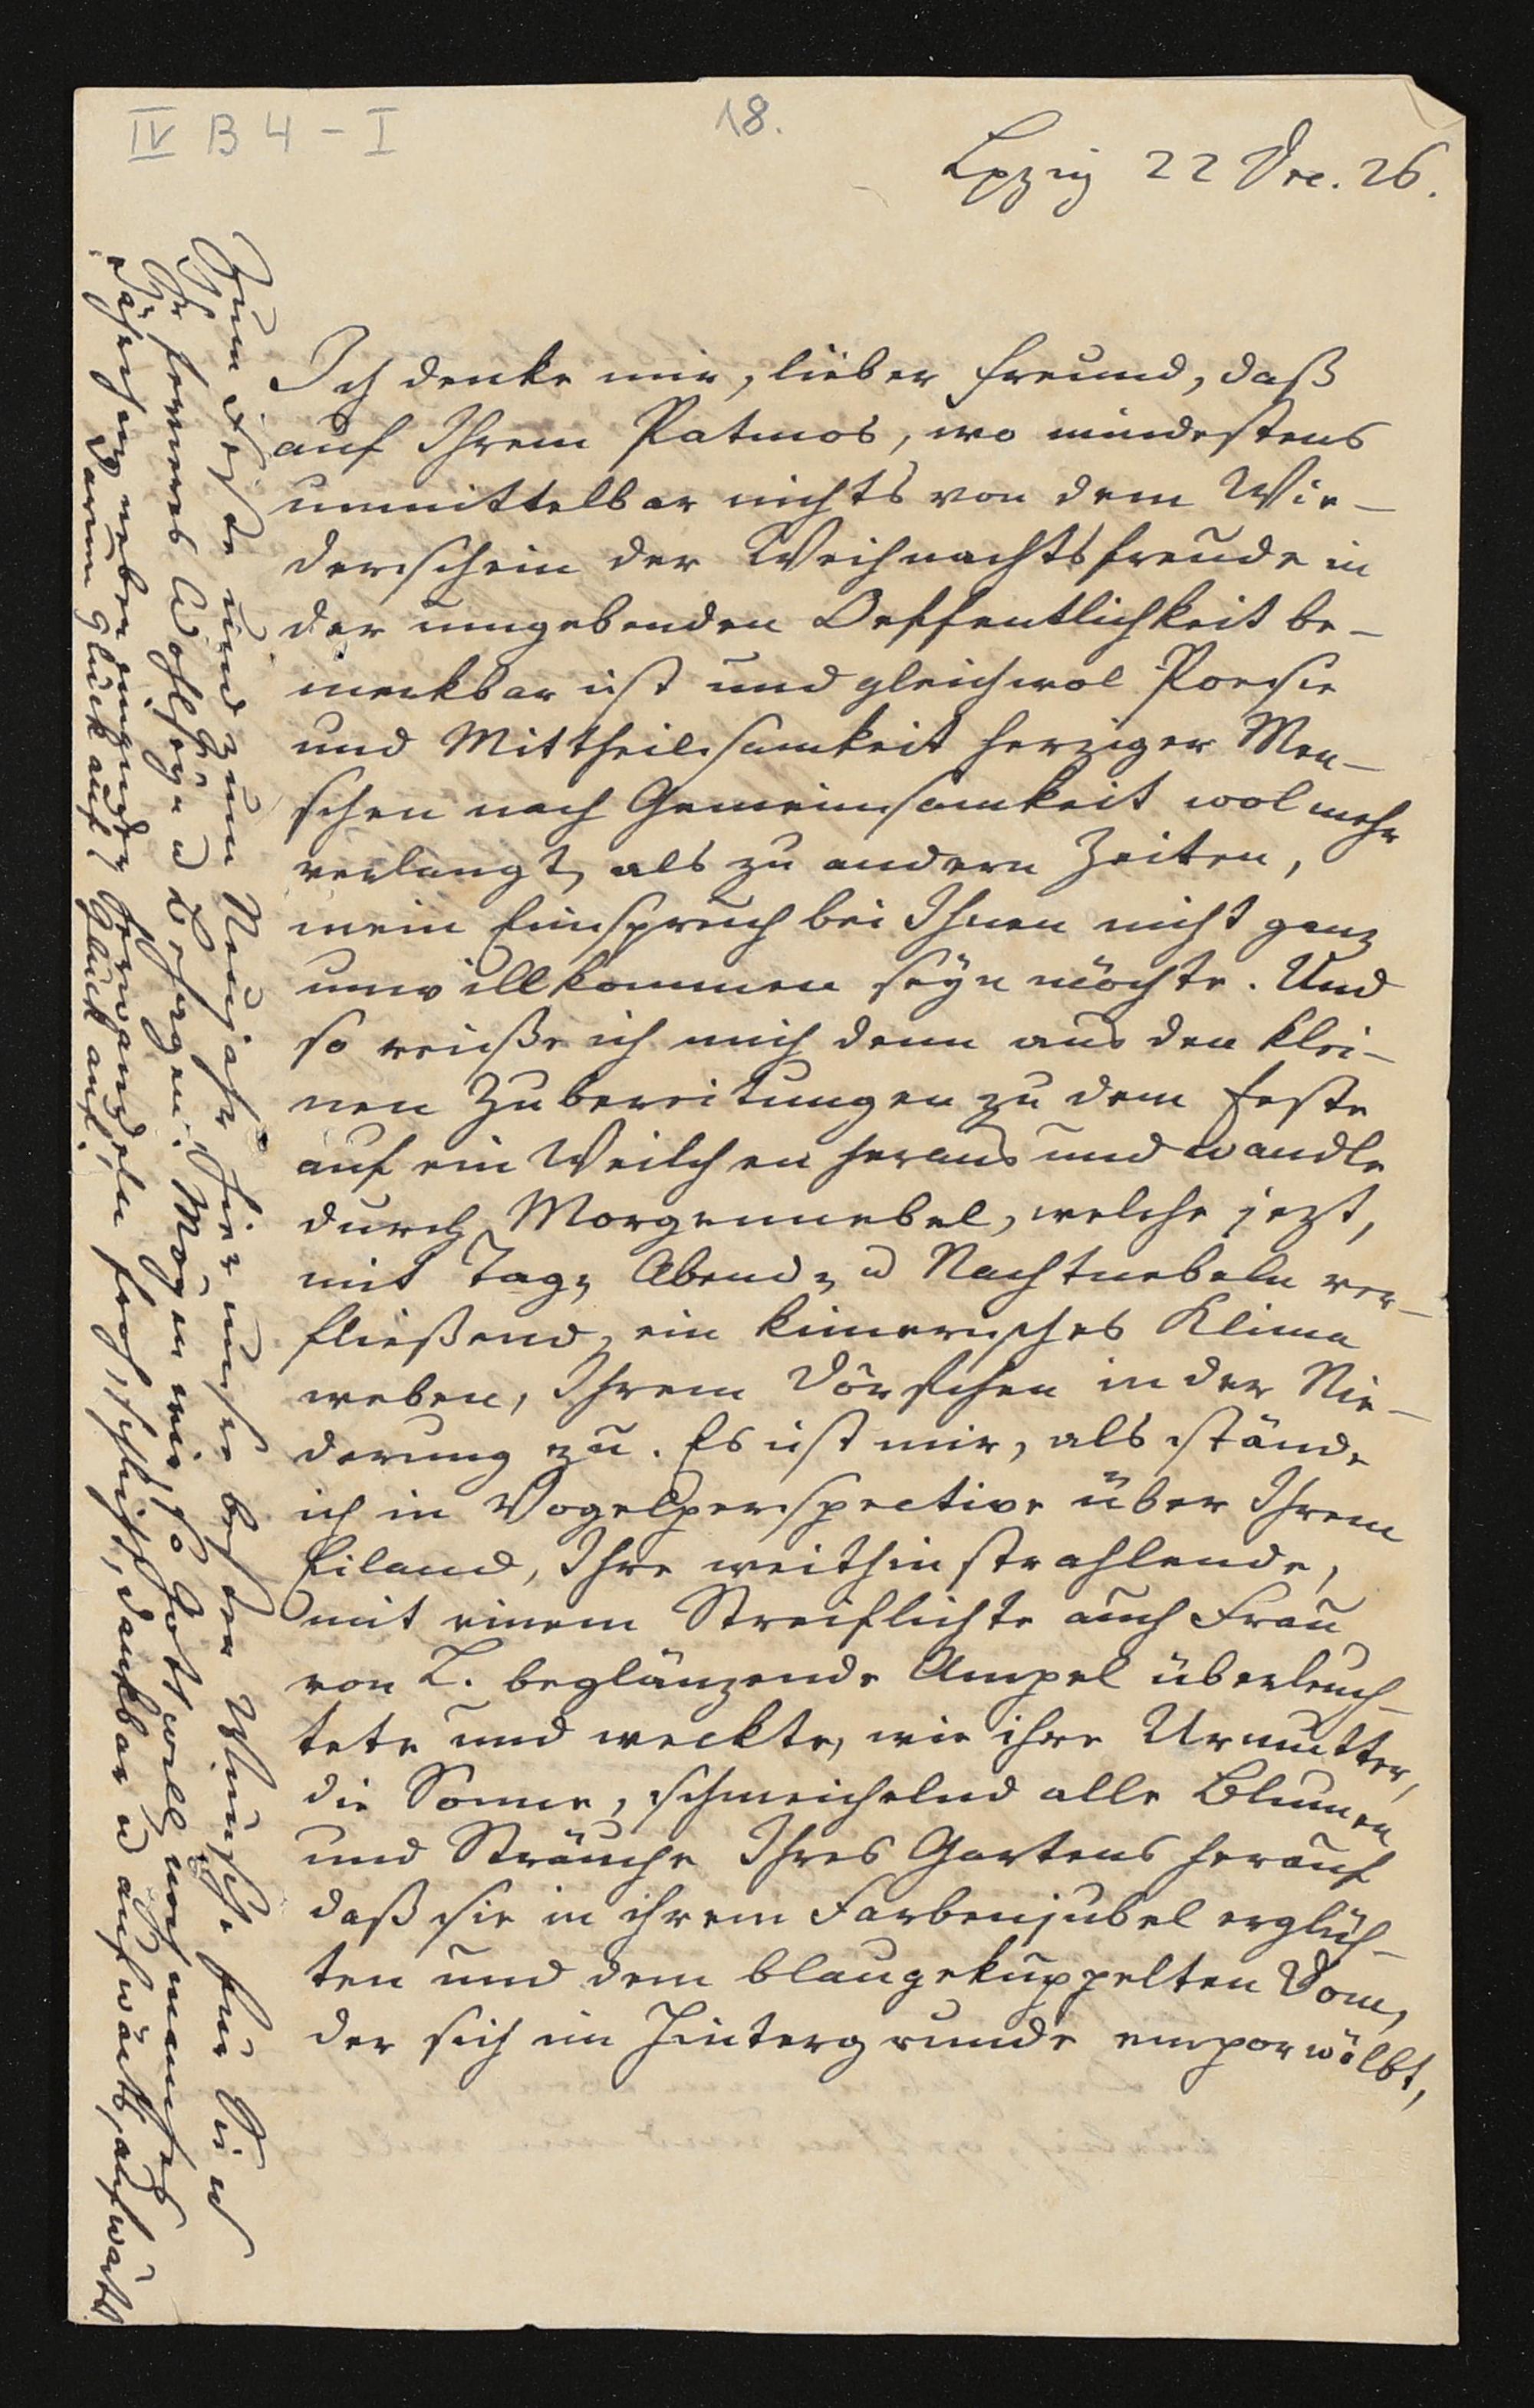 IV B 4 - I
18.
Lpzig 22 Dec. 26.
Ich denke mir, lieber Freund, daß
auf Ihrem Patmos, wo mindestens
unmittelbar nichts von dem Wie-
derschein der Weihnachtsfreude in
der umgebenden Oeffentlichkeit be-
merkbar ist und gleichwol Poesie
und Mittheilsamkeit herziger Men-
schen nach Gemeinsamkeit wol mehr
verlangt, als zu andern Zeiten,
mein Einspruch bei Ihnen nicht ganz
unwillkommen seyn möchte. Und
so reiße ich mich denn aus den klei-
nen Zubereitungen zu dem Feste
auf ein Weilchen heraus und wandle
durch Morgennebel, welche jezt,
mit Tag- Abend- u Nachtnebeln ver-
fließend, ein kimerisches Klima
weben, Ihrem Dörfchen in der Nie-
derung zu. Es ist mir, als stände
ich in Vogelperspective über Ihrem
Eiland, Ihre weithin strahlende,
mit einem Streiflichte auch Frau
von L. beglänzende Ampel überleuch-
tete und weckte, wie ihre Urmutter,
die Sonne, schmeichelnd alle Blumen
und Sträuche Ihres Gartens herauf
daß sie in ihrem Farbenjubel erglüh-
ten und dem blaugekuppelten Dom,
der sich im Hintergrunde emporwölbt,
Zum Feste und zum Neujahr hier unsre besten Wünsche für Sie u
Ihr ferneres Wohlseyn u Behagen. Mögen wir, so Gott will, noch manches
Jährchen neben einander fortwandeln froh, schlicht, dankbar u aufwärts, aufwärts
Darum Glück auf! Glück auf!